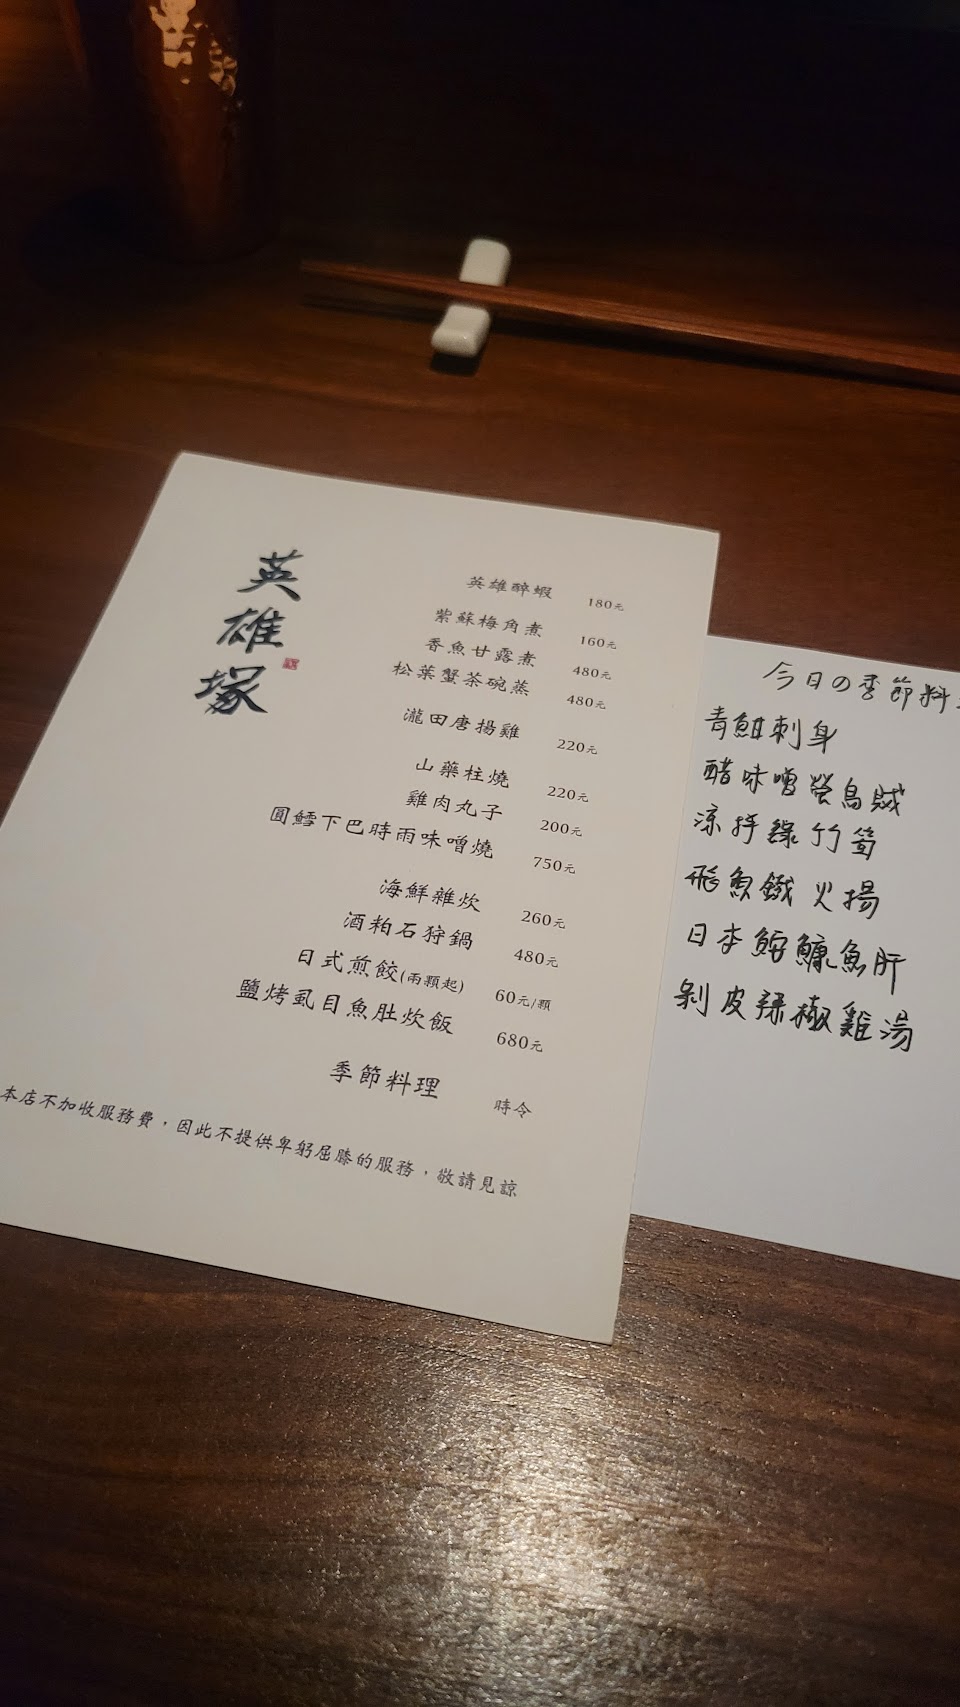 英雄塚
英雄醉蝦 180元
紫蘇梅角煮 160元
香魚甘露煮 480元
松葉蟹茶碗蒸 480元
瀧田唐揚雞 220元
山藥柱燒 220元
雞肉丸子 200元
圓鱈下巴時雨味噌燒 750元
海鮮雜炊 260元
酒粕石狩鍋 480元
日式煎餃(兩顆起) 60元/顆
鹽烤虱目魚肚炊飯 680元
季節料理 時令
本店不加收服務費，因此不提供卑躬屈膝的服務，敬請見諒
今日の季節料
青魽刺身
醋味噌螢烏賊
涼拌綠竹筍
飛魚鐵火揚
日本鮟鱇魚肝
剝皮辣椒雞湯